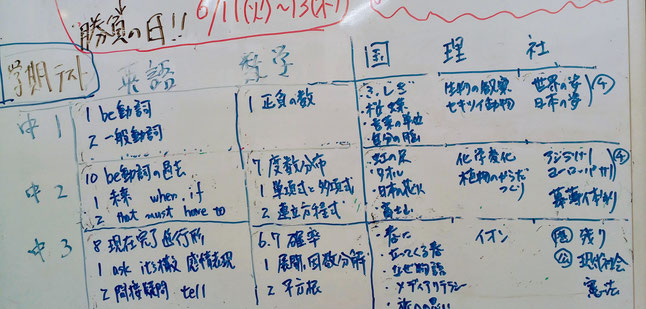 6/11(火)~13(木)
勝負の日!!
学期テスト
英語 数学 国 理 社
中1
1 be動詞
2 一般動詞
1 正負の数
ふしぎ
桜蝶
自分の脳
生物の観察
セキツイ動物
世界の姿
日本の姿
中2
10 be動詞の過去
1 未来 when. if
2 that must have to
7 度数分布
1 単項式と多項式
2 連立方程式
虹の足
タオル
日本の花火
化学変化
植物のからだ
つくり
中3
8 現在完了進行形
1 ask it's構文 感情表現
2 間接疑問 tell
6.7 確率
1 展開、因数分解
2 平方根
春に
立ってくる春
なぜ物語
メディアリテラシー
イオン
歴 残り
公 現代社会
憲法